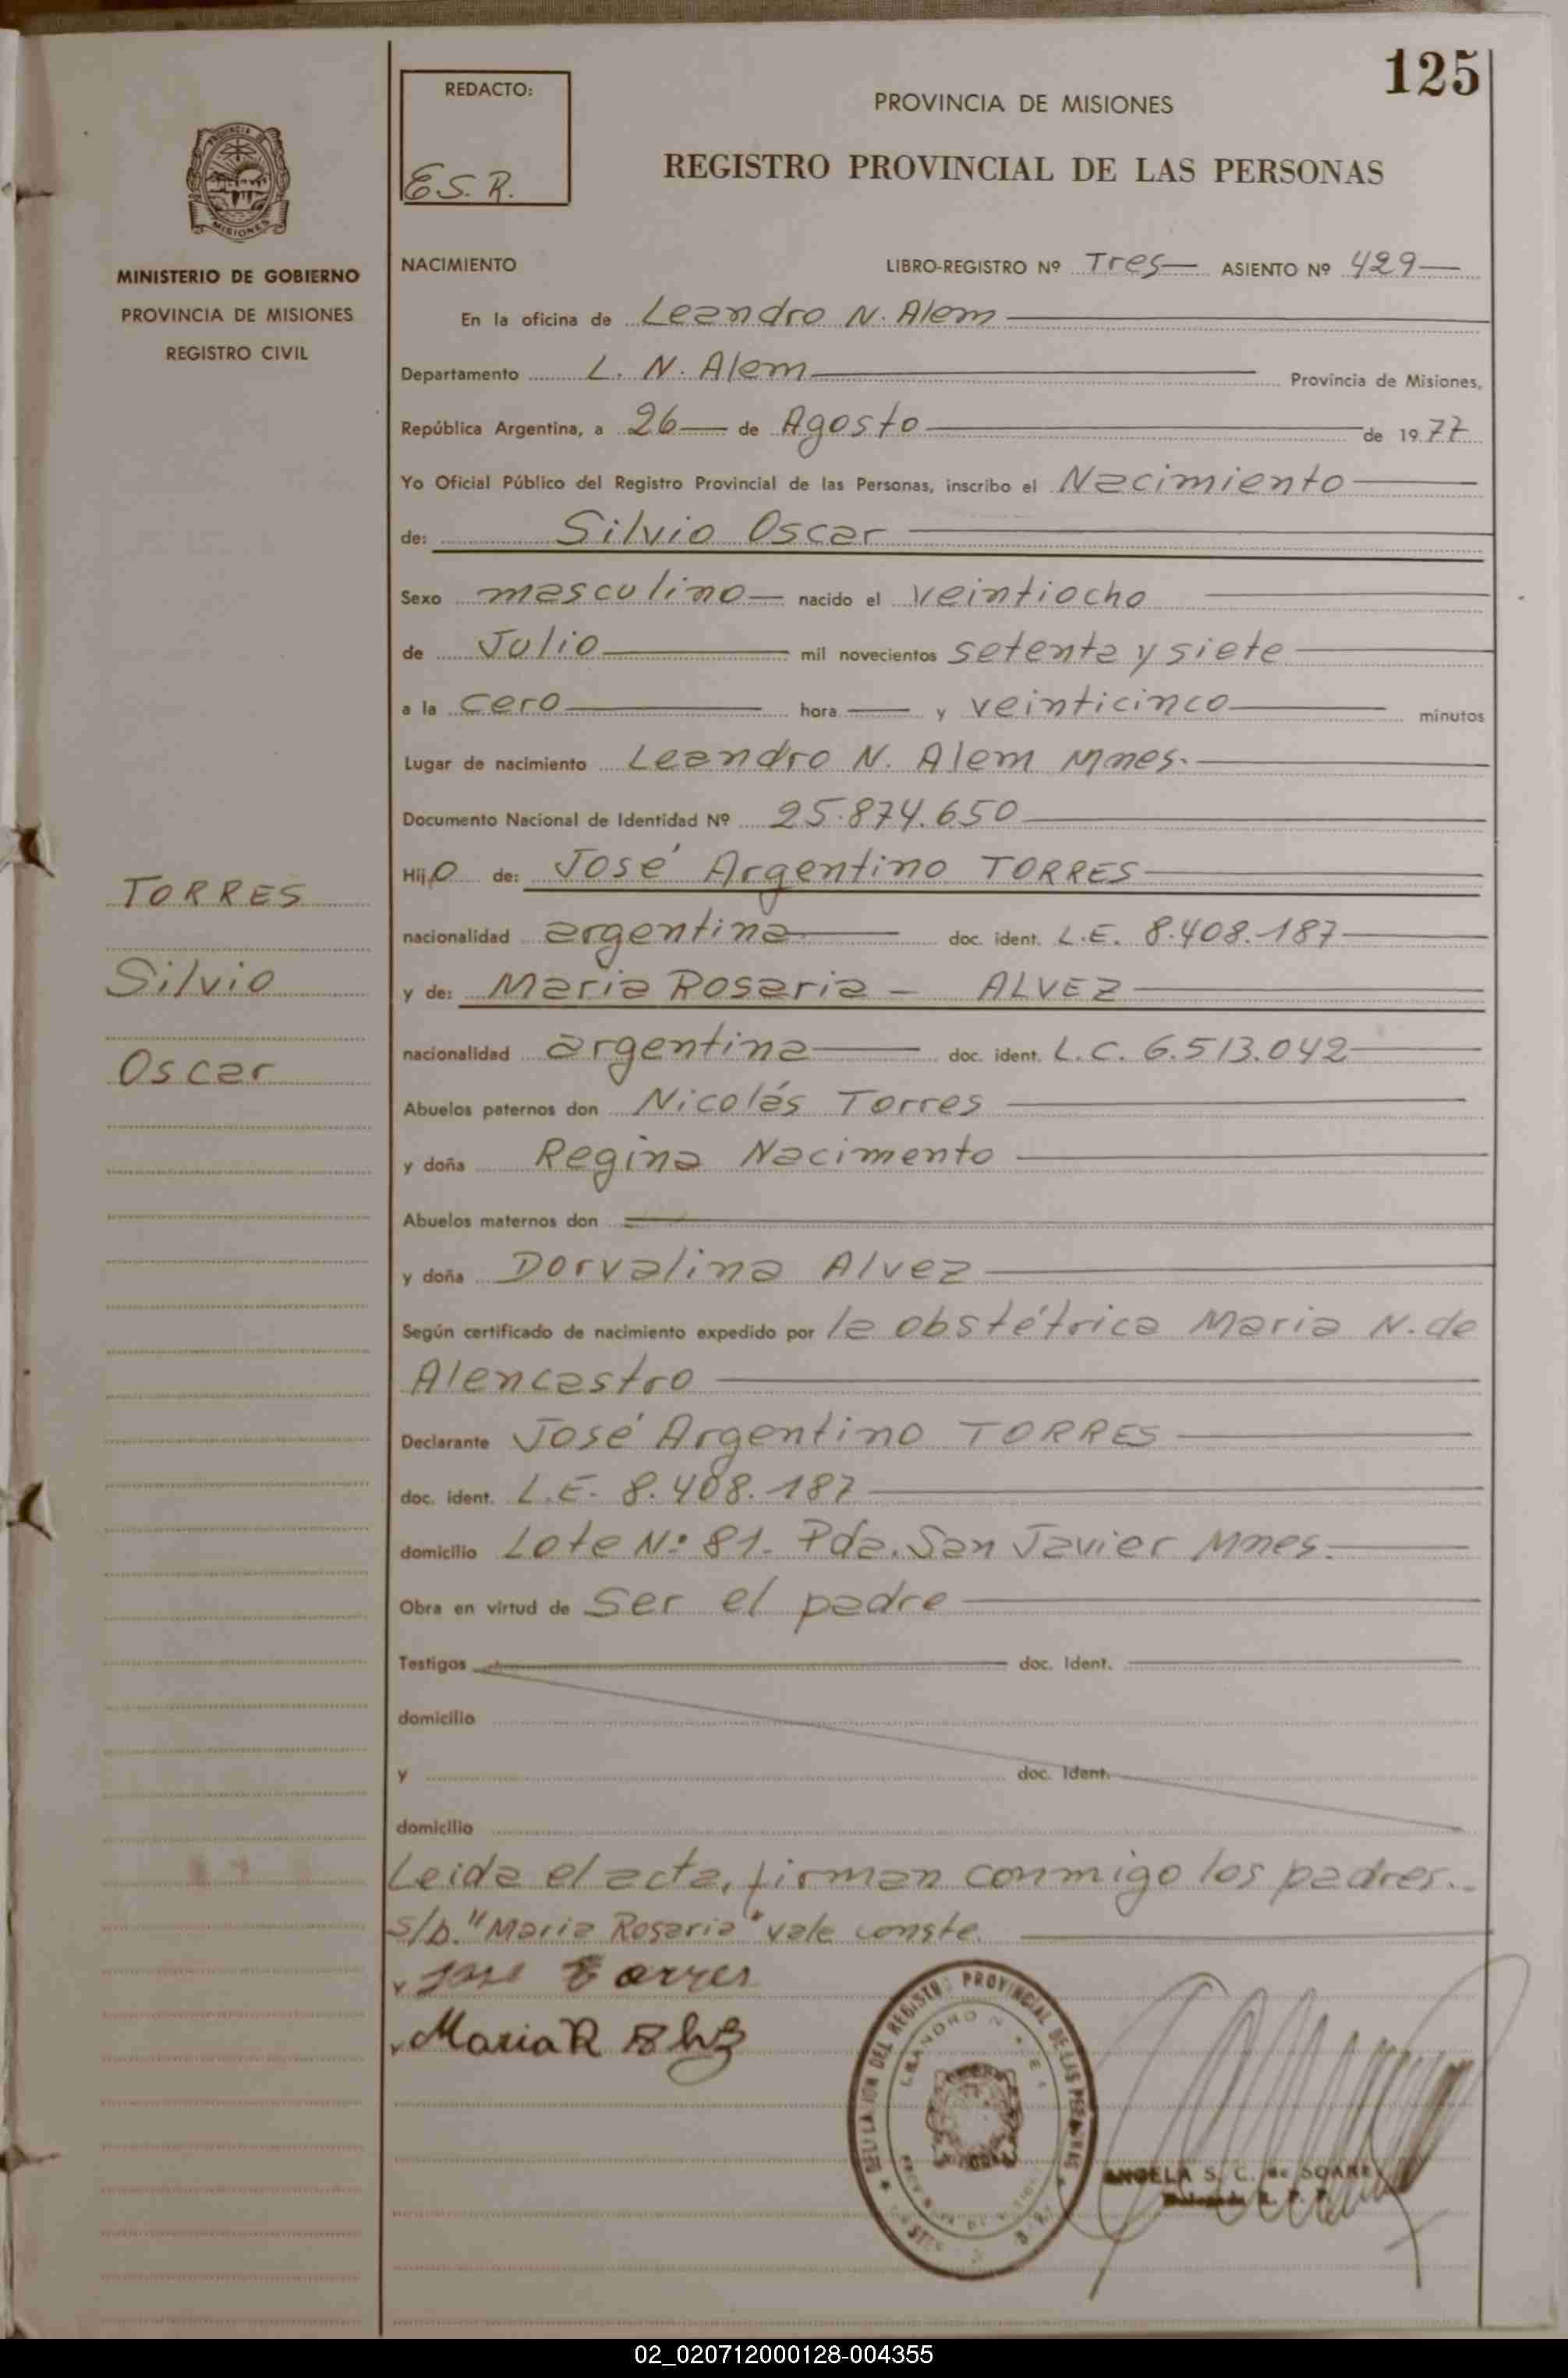 125
REDACTO:
E.S.R.
PROVINCIA DE MISIONES
REGISTRO PROVINCIAL DE LAS PERSONAS
MISIONES
MINISTERIO DE GOBIERNO
PROVINCIA DE MISIONES
REGISTRO CIVIL
NACIMIENTO LIBRO-REGISTRO Nº Tres ASIENTO Nº 429
En la oficina de Leandro N. Alem
Departamento L. N. Alem Provincia de Misiones,
República Argentina, a 26 de Agosto de 1977
Yo Oficial Público del Registro Provincial de las Personas, inscribo el Nacimiento
de: Silvio Oscar
Sexo masculino nacido el veintiocho
de Julio mil novecientos setenta y siete
a la cero hora y veinticinco minutos
Lugar de nacimiento Leandro N. Alem Mnes.
Documento Nacional de Identidad Nº 25.874.650
Hijo de: José Argentino TORRES
nacionalidad argentina doc. ident. L.E. 8.408.187
y de: Maria Rosaria - ALVEZ
nacionalidad argentina doc. ident. L.C. 6.513.042
Abuelos paternos don Nicolás Torres
y doña Regina Nacimento
Abuelos maternos don
y doña Dorvalina Alvez
Según certificado de nacimiento expedido por la obstétrica Maria N. de
Alencastro
Declarante José Argentino TORRES
doc. ident. L.E. 8.408.187
domicilio Lote Nº 81. Pda. San Javier Mnes.
Obra en virtud de ser el padre
Testigos doc. Ident.
domicilio
y doc. Ident.
domicilio
Leida el acta, firman conmigo los padres.
s/b. "Maria Rosaria" vale conste.
Jose Torres
Maria R
TORRES
Silvio
Oscar
DEL REGISTRO PROVINCIAL DE LAS PERSONAS
LEANDRO N
ANGELA S. C. de
02_020712000128-004355